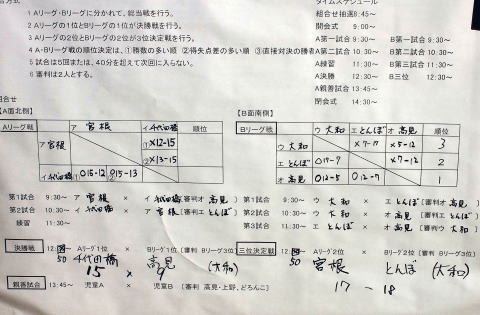 1 Aリーグ・Bリーグに分かれて、総当戦を行う。
2 Aリーグの1位とBリーグの1位が決勝戦を行う。
3 Aリーグの2位とBリーグの2位が3位決定戦を行う。
4 A・Bリーグ戦の順位決定は、①勝数の多い順 ②得失点差の多い順 ③直接対決の勝者
5 試合は5回または、40分を超えて次回に入らない。
6 審判は2人とする。
タイムスケジュール
組合せ抽選8:45～
開会式 9:00～
A第一試合 9:30～ B第一試合 9:30～
A第二試合 10:30～ B第二試合 10:30～
A練習 11:30～ B第三試合 11:30～
A決勝 12:30～ B三位 12:30～
A親善試合 13:45～
閉会式 14:30～
組合せ
【A面北側】
Aリーグ戦 ア 宮根 イ 千代田橋 順位
ア 宮根 ①×12-15 ②×13-15
イ 千代田橋 ①○15-12 ②○15-13
第1試合 9:30～ ア 宮根 × イ 千代田橋 [審判オ 高見]
第2試合 10:30～ イ 千代田橋 × ア 宮根 [審判エ とんぼ]
練習 11:30～
決勝戦 12:50 Aリーグ1位 × Bリーグ1位 [審判 Bリーグ3位]
千代田橋 高見 (大和)
15 × 9
親善試合 13:45～ 児童A × 児童B [審判 高見・上野、どろんこ]
【B面南側】
Bリーグ戦 ウ 大和 エ とんぼ オ 高見 順位
ウ 大和 ×7-17 ×5-12 3
エ とんぼ ○17-7 ×7-12 2
オ 高見 ○12-5 ○12-7 1
第1試合 9:30～ ウ 大和 × エ とんぼ [審判オ 高見]
第2試合 10:30～ ウ 大和 × オ 高見 [審判エ とんぼ]
第3試合 11:30～ エ とんぼ × オ 高見 [審判ウ 大和]
三位決定戦 12:50 Aリーグ2位 × Bリーグ2位 [審判 Bリーグ3位]
宮根 とんぼ (大和)
17 - 18